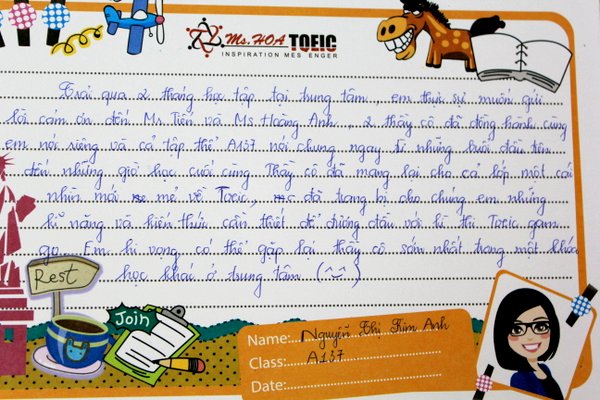 Ms. HOA TOEIC
INSPIRATION MESSENGER
Trải qua 2 tháng học tập tại trung tâm, em thực sự muốn gửi
lời cảm ơn đến Mr. Tiến và Ms. Hoàng Anh. 2 thầy cô đã đồng hành cùng
em nói riêng và cả tập thể A137 nói chung ngay từ những buổi đầu tiên
đến những giờ học cuối cùng. Thầy cô đã mang lại cho cả lớp một cái
nhìn mới mẻ về Toeic, đã trang bị cho chúng em những
kĩ năng và kiến thức cần thiết để đương đầu với kì thi Toeic gam
go. Em hi vọng có thể gặp lại thầy cô sớm nhất trong một khóa
học khác ở trung tâm (^^)
Rest
Join
Name: Nguyễn Thị Kim Anh
Class: A137
Date: